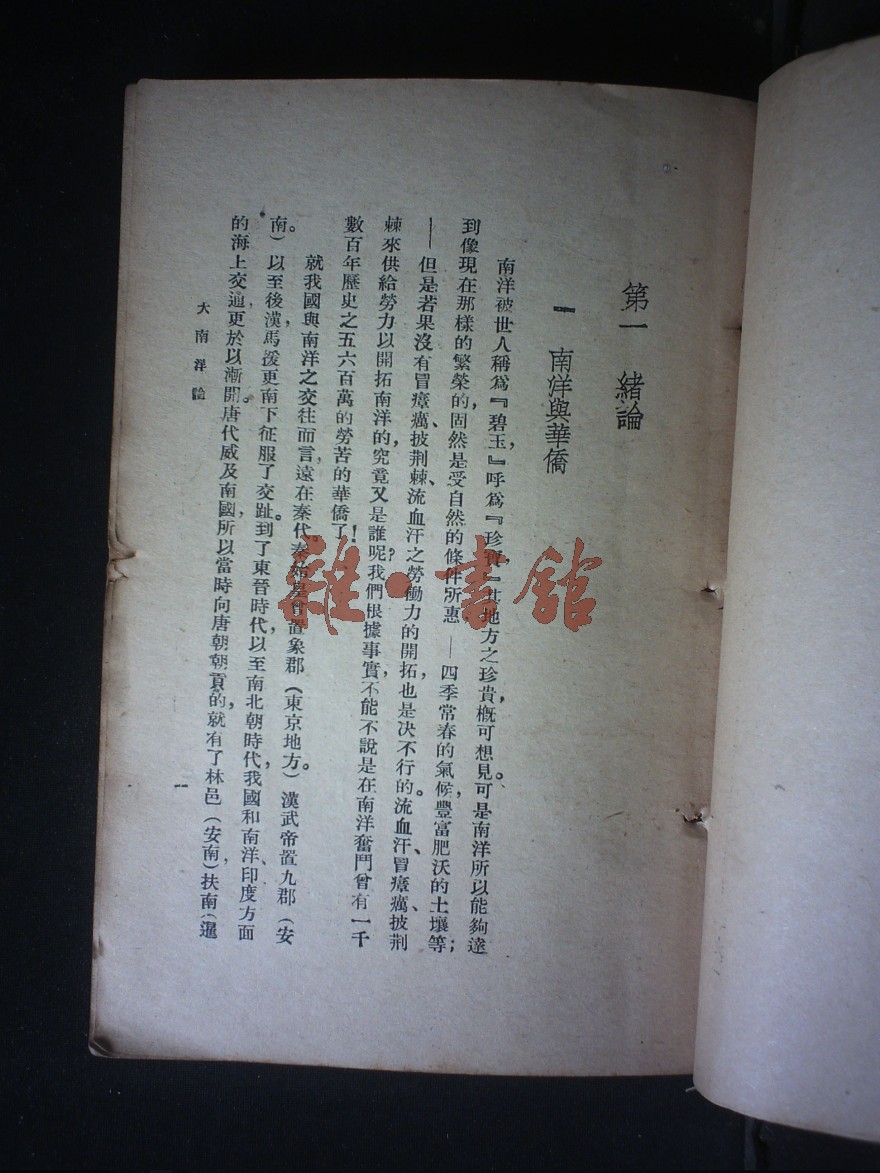 第一　緒論
一　南洋與華僑
南洋被世人稱爲『碧玉，』呼爲『珍寶，』其地方之珍貴，概可想見。可是南洋所以能夠達
到像現在那樣的繁榮的固然是受自然的條件所惠——四季常春的氣候，豐富肥沃的土壤等；
——但是若果沒有冒瘴癘、披荆棘、流血汗之勞働力的開拓，也是决不行的。流血汗、冒瘴癘、披荆
棘來供給勞力以開拓南洋的，究竟又是誰呢？我們根據事實，不能不說是在南洋奮鬥曾有一千
數百年歷史之五六百萬的勞苦的華僑了！
就我國與南洋之交往而言，遠在秦代。秦始皇曾置象郡（東京地方。）漢武帝置九郡（安
南。）以至後漢，馬援更南下征服了交趾。到了東晉時代，以至南北朝時代，我國和南洋、印度方面
的海上交通，更於以漸開。唐代威及南國，所以當時向唐朝朝貢的，就有了林邑（安南，）扶南（暹
大南洋論
一
雜·書館